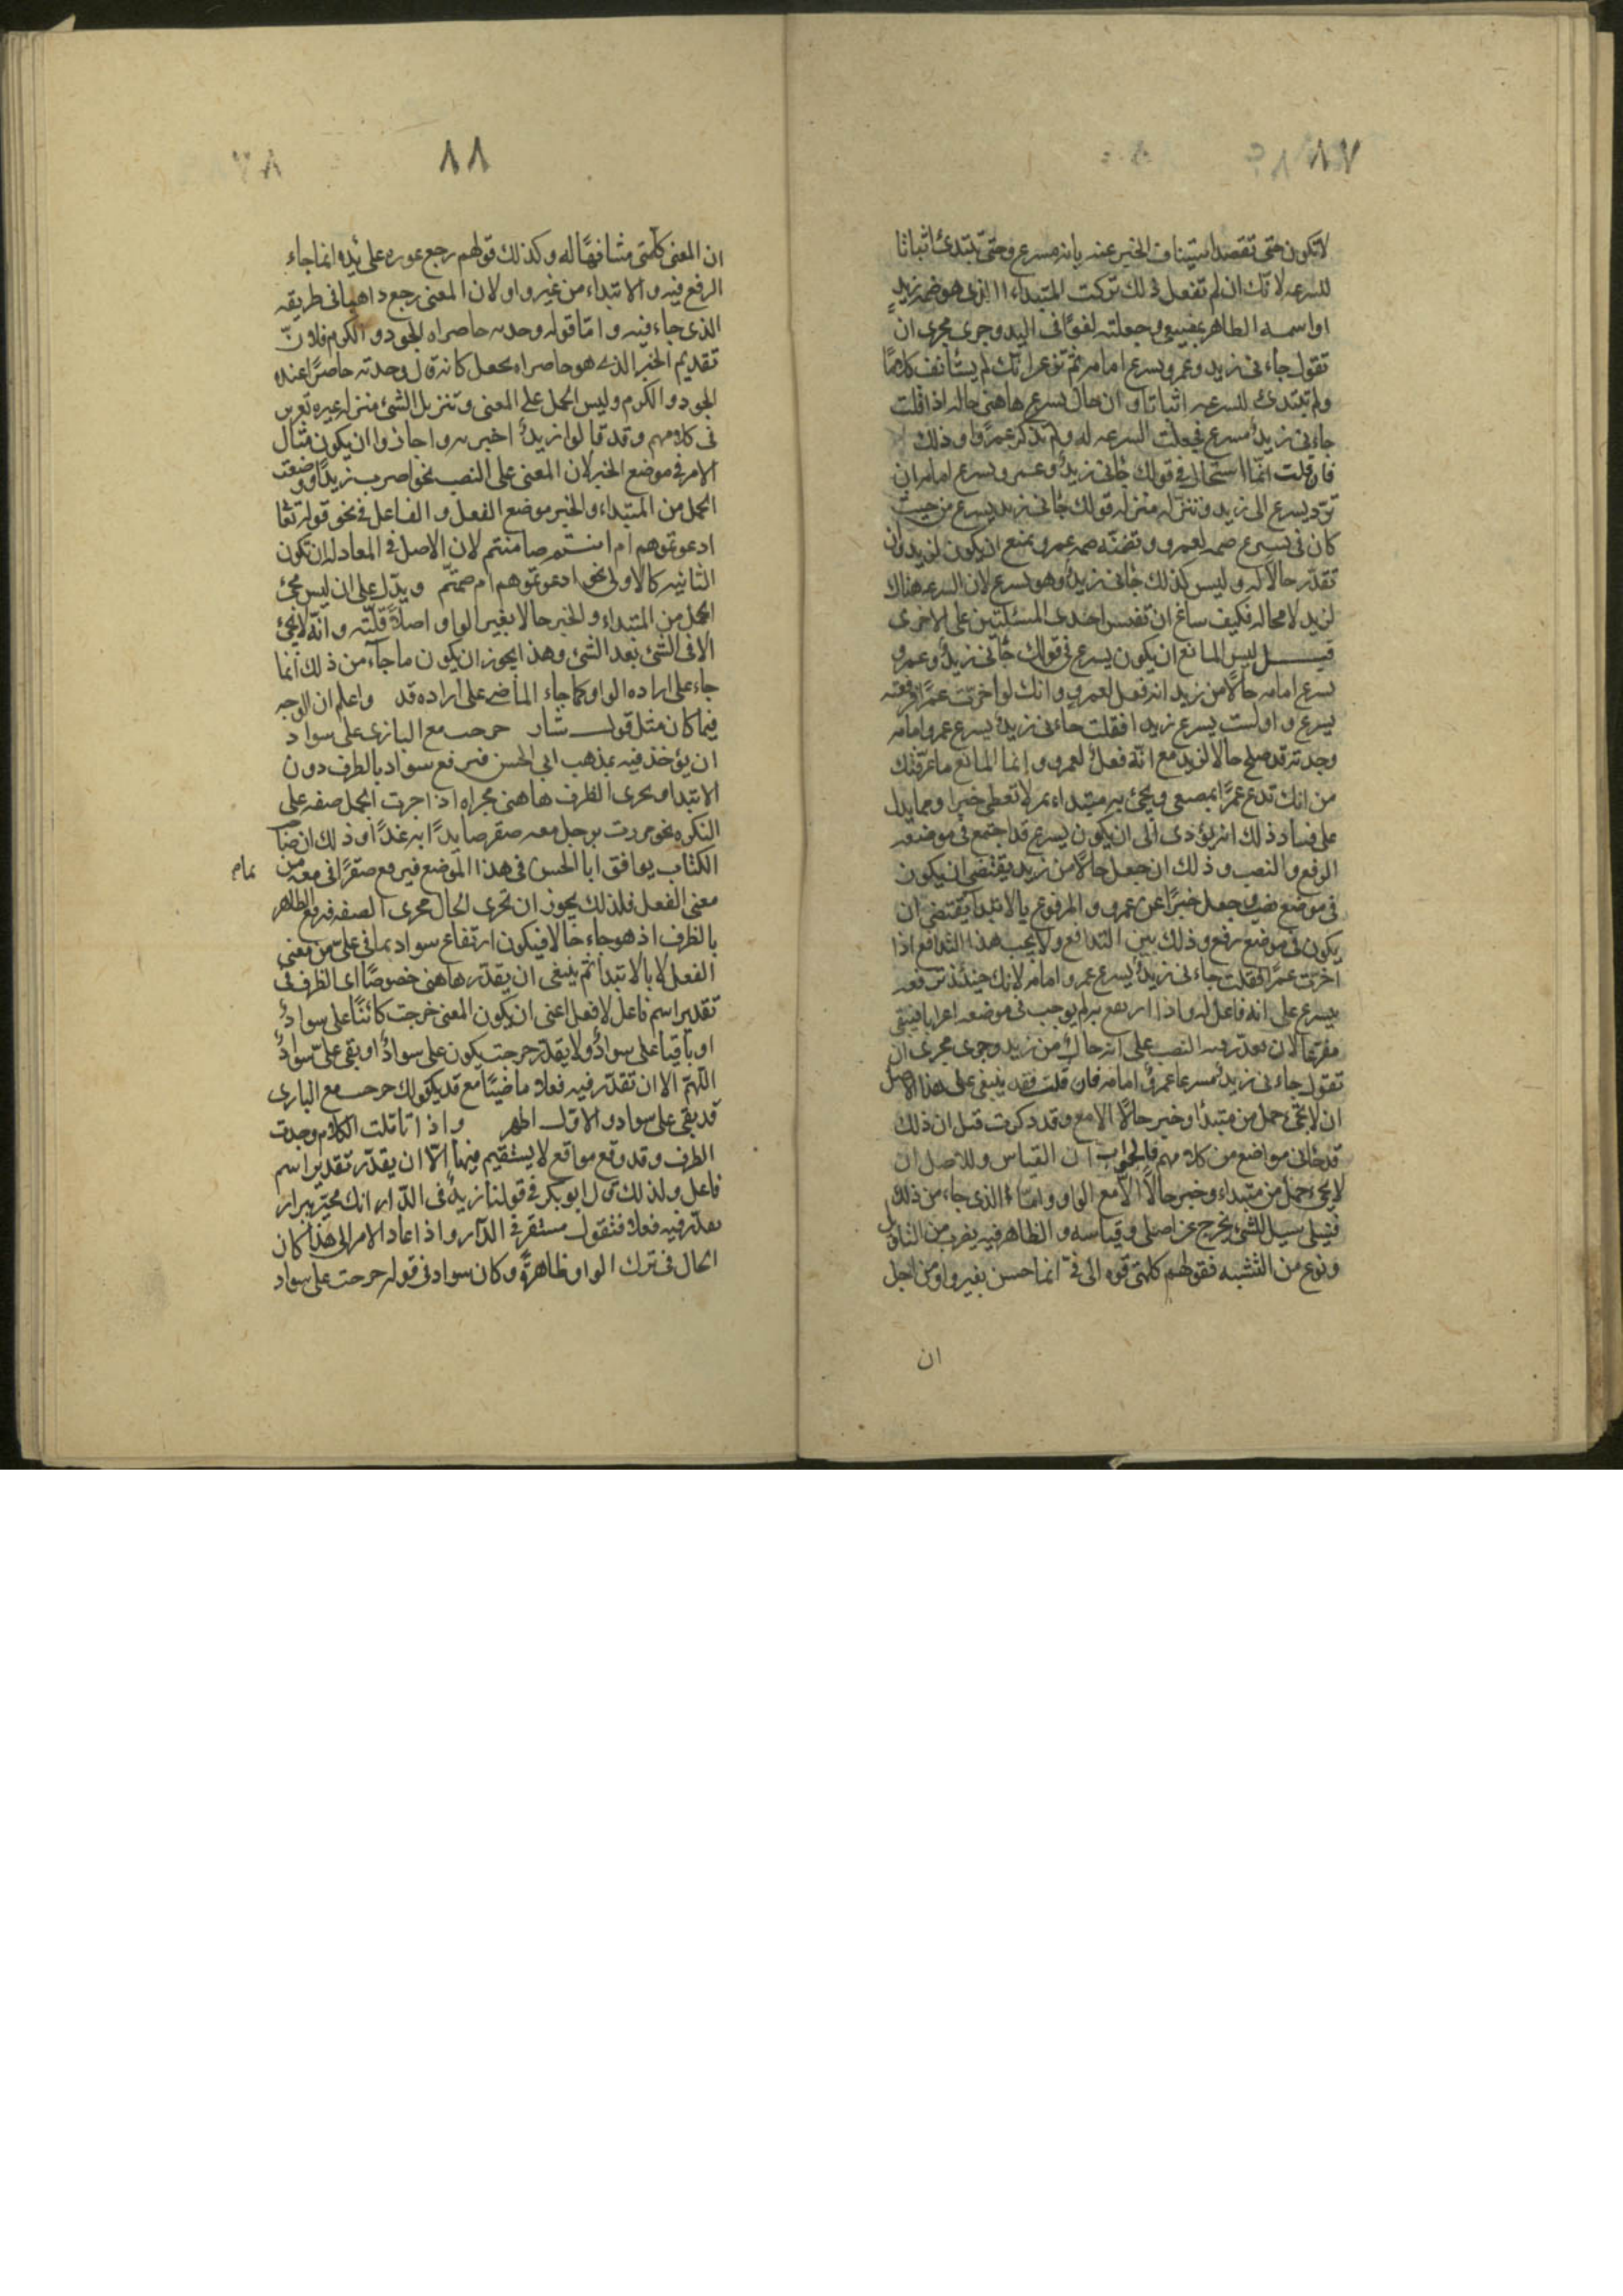 ٨٧
لا تكون حتى تقصد استيناف الخبر عنه بانه مسرع وحتى تبتدئ اثباتا
للسرعه لانك ان لم تفعل ذلك تركت المبتداء الذى هو ضمير زيد
او اسمه الظاهر بمضيعة وجعلته لغوًا فى البيد وجرى مجرى ان
تقول جاءنى زيد وعمرو يسرع امامه ثم تزعم انك لم يستأنف كلامًا
ولم تبتدئ للسرعه اثباتا وان حال يسرع هاهنى حاله اذا قلت
جاءنى زيدٌ مسرع فجعلت السرعه له ولم تذكر عمرًا وذلك
فان قلت انما استحال فى قولك جاءنى زيدٌ وعمرو يسرع امامه ان
تردّ يسرع الى زيد وتنزله منزله قولك جاءنى زيد يسرع من حيث
كان فى يسرع ضمير لعمرو وتضمنه ضمير عمرو يمنع ان يكون لزيد وان
تقدّر حالا له وليس كذلك جاءنى زيدٌ وهو يسرع لان السرعه هناك
لزيد لا محاله فكيف ساغ ان تقيس احدى المسئلتين على الاخرى
قيل ليس المانع ان يكون يسرع فى قولك جاءنى زيدٌ وعمرو
يسرع امامه حالًا من زيد انه فعل لعمرو وانك لو اخرّت عمرًا فرفعته
بيسرع واوليت يسرع زيدا فقلت جاءنى زيدٌ يسرع عمرو امامه
وجدته قد صلح حالا لزيد مع انّه فعلٌ لعمرو وإنما المانع ما عرّفتك
من انك تدع عمرًا بمضيعة وتجئ به مبتداء ثم لا تعطى خبرا ومما يدل
على فساد ذلك انه يؤدى الى ان يكون يسرع قد اجتمع فى موضعه
الرفع والنصب وذلك ان جعل حالًا من زيد يقتضى ان يكون
فى موضع نصب وجعل خبرًا عن عمرو المرفوع بالابتدا يقتضى ان
يكون فى موضع رفع وذلك بيّن التدافع ولا يجب هذا التدافع اذا
اخرت عمرًا فقلت جاءنى زيدٌ يسرع عمرو امامه لانك حينئذ ترفعه
بيسرع على انه فاعل له واذا ارتفع به لم يوجب فى موضعه اعرابا فيبقى
مفرغًا لان يقدّر فيه النصب على انه حال من زيد وجرى مجرى ان
تقول جاءنى زيدٌ مسرعا عمروٌ امامه فان قلت فقد ينبغى على هذا الاصل
ان لا تجئ جمله من مبتدأ وخبر حالًا الا مع وقد ذكرت قبل ان ذلك
قد جاء فى مواضع من كلامهم فالجواب ان القياس والاصل ان
لا يجئ جمله من مبتداء وخبر حالًا الا مع الواو وامّا الذى جاء من ذلك
فسبيله سبيل الشئ يخرج عن اصله وقياسه والظاهر فيه بضرب من التاويل
ونوع من التشبيه فقولهم كلمته فوه الى فيّ انما حسن بغير واو من اجل
ان
٨٨
ان المعنى كلمته مشافهًا له وكذلك قولهم رجع عوده على بدئه انما جاء
الرفع فيه والابتداء من غير واو لان المعنى رجع ذاهبا فى طريقه
الذى جاء فيه وامّا قوله وجدته حاضراه الجود والكرم فلانّ
تقديم الخبر الذى هو حاضراه يجعله كانه قال وجدته حاضرًا عنده
الجود والكرم وليس الحمل على المعنى وتنزيل الشئ منزله غيره بعزيز
فى كلامهم وقد قالوا زيدٌ اضربه واجازوا ان يكون مثال
الامر فى موضع الخبر لان المعنى على النصب نحو اضرب زيدًا ووضعت
الجمل من المبتداء والخبر موضع الفعل والفاعل فى نحو قوله تعا
ادعوتموهم ام انتم صامتتم لان الاصل فى المعادله ان تكون
الثانيه كالاولى نحو ادعوتموهم ام صمتّم ويدّل على ان ليس مجئ
الجمل من المبتداء والخبر حالا بغير الواو اصلًا قلّته وانّه لا يجئ
الا فى الشئ بعد الشئ وهذا يجوز ان يكون ما جآء من ذلك انما
جاء على اراده الواو كما جاء الماضى على اراده قد واعلم ان الوجه
فيما كان مثل قول بشار خرجت مع البازى على سواد
ان يؤخذ فيه بمذهب ابي الحسن فيرفع سواد بالظرف دون
الابتدا ويجرى الظرف هاهنى مجراه اذا جرت الجمل صفه على
النكره نحو مررت برجل معه صقر صايدًا به غدًا وذلك ان صا
الكتاب يوافق ابا الحسن فى هذا الموضع فيرفع صقرًا فى معه من
تمام
معنى الفعل فلذلك يجوز ان تجرى الحال مجرى الصفه فرفع الظاهر
بالظرف اذ هو جاء حالا فيكون ارتفاع سواد بما فى علىّ من معنى
الفعل لا بالابتدا ثم ينبغى ان يقدّر هاهنى خصوصًا ان الظرف فى
تقدير اسم فاعل لا فعل اعنى ان يكون المعنى خرجت كائنًا على سوادٌ
او باقيا على سوادٌ ولا يقدّر خرجت يكون على سوادٌ او يبقى علىّ سوادٌ
اللهمّ الا ان تقدّر فيه فعلا ماضيًا مع قد يكقولك خرجت مع البازى
قد بقى على سواد والاول اظهر واذا تاملت الكلام وجدت
الظرف وقد وقع مواقع لا يستقيم فيها الّا ان يقدّر تقدير اسم
فاعل ولذلك قال ابو بكر فى قولنا زيدٌ فى الدّار انك مخيّر بين ان
تقدّر فيه فعلا فتقول مستقر فى الدّار واذا عاد الامر الى هذا كان
الحال فى ترك الواو ظاهرةً وكان سواد فى قوله خرجت على سواد